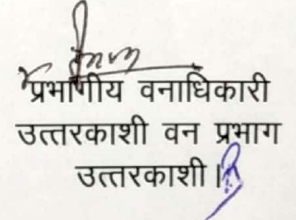 प्रभागीय वनाधिकारी
उत्तरकाशी वन प्रभाग
उत्तरकाशी।